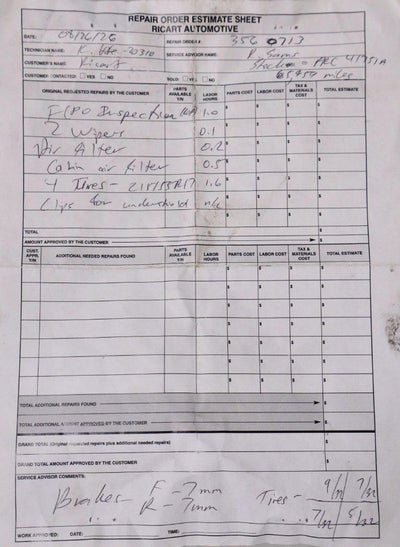 REPAIR ORDER ESTIMATE SHEET
RICART AUTOMOTIVE
DATE: 03/26/26 REPAIR ORDER #: 356 0713
TECHNICIAN NAME: SERVICE ADVISOR NAME:
CUSTOMER'S NAME: Ricart
65,957 miles
CUSTOMER CONTACTED: YES NO SOLD: YES NO
ORIGINAL REQUESTED REPAIRS BY THE CUSTOMER PARTS AVAILABLE Y/N LABOR HOURS PARTS COST LABOR COST TAX & MATERIALS COST TOTAL ESTIMATE
FCPO Inspection 1.0
2 Wipers 0.1
Air Filter 0.2
Cabin air filter 0.5
4 Tires - 215/55R17 1.6
Clips for undershield n/c
TOTAL
AMOUNT APPROVED BY THE CUSTOMER
CUST. APPR. Y/N ADDITIONAL NEEDED REPAIRS FOUND PARTS AVAILABLE Y/N LABOR HOURS PARTS COST LABOR COST TAX & MATERIALS COST TOTAL ESTIMATE
TOTAL ADDITIONAL REPAIRS FOUND
TOTAL ADDITIONAL AMOUNT APPROVED BY THE CUSTOMER
GRAND TOTAL (Original requested repairs plus additional needed repairs)
GRAND TOTAL AMOUNT APPROVED BY THE CUSTOMER
SERVICE ADVISOR COMMENTS:
Brakes - F - 7mm Tires - 9/32 7/32
R - 7mm 7/32 5/32
WORK APPROVED: DATE: TIME: